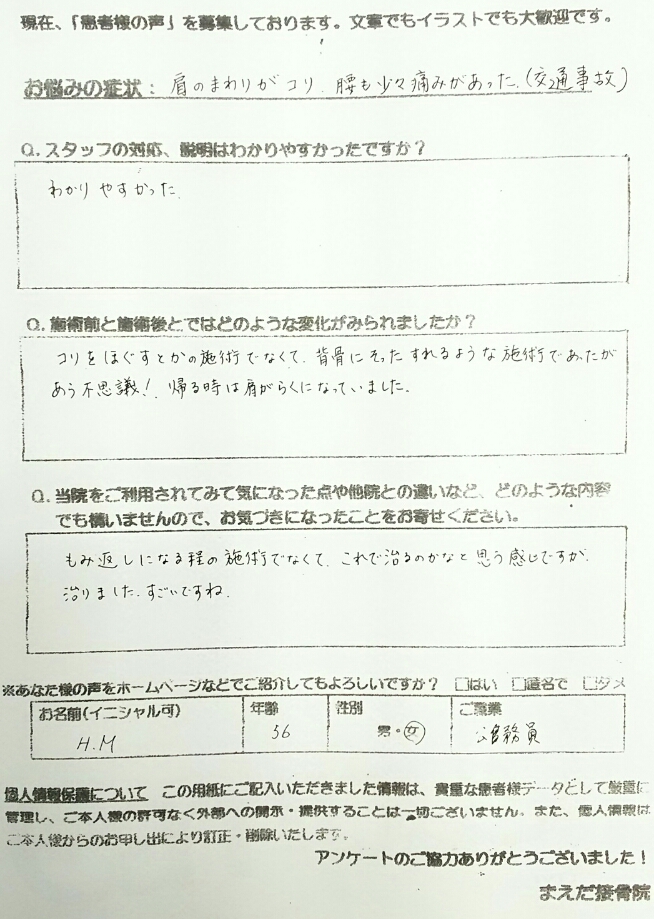 現在、「患者様の声」を募集しております。文章でもイラストでも大歓迎です。
お悩みの症状： 肩のまわりがコリ、腰も少々痛みがあった。(交通事故)
Q.スタッフの対応、説明はわかりやすかったですか？
わかりやすかった。
Q.施術前と施術後とではどのような変化がみられましたか？
コリをほぐすとかの施術でなくて、背骨にそったすれるような施術であったが
あう不思議！帰る時は肩がらくになっていました。
Q.当院をご利用されてみて気になった点や他院との違いなど、どのような内容
でも構いませんので、お気づきになったことをお寄せください。
もみ返しになる程の施術でなくて、これで治るのかなと思う感じですが、
治りました。すごいですね。
※あなた様の声をホームページなどでご紹介してもよろしいですか？ □はい □匿名で □ダメ
お名前(イニシャル可) 年齢 性別 ご職業
H.M 36 男・女 公務員
個人情報保護について この用紙にご記入いただきました情報は、貴重な患者様データとして厳重に
管理し、ご本人様の許可なく外部への開示・提供することは一切ございません。また、個人情報は
ご本人様からのお申し出により訂正・削除いたします。
アンケートのご協力ありがとうございました！
まえだ接骨院